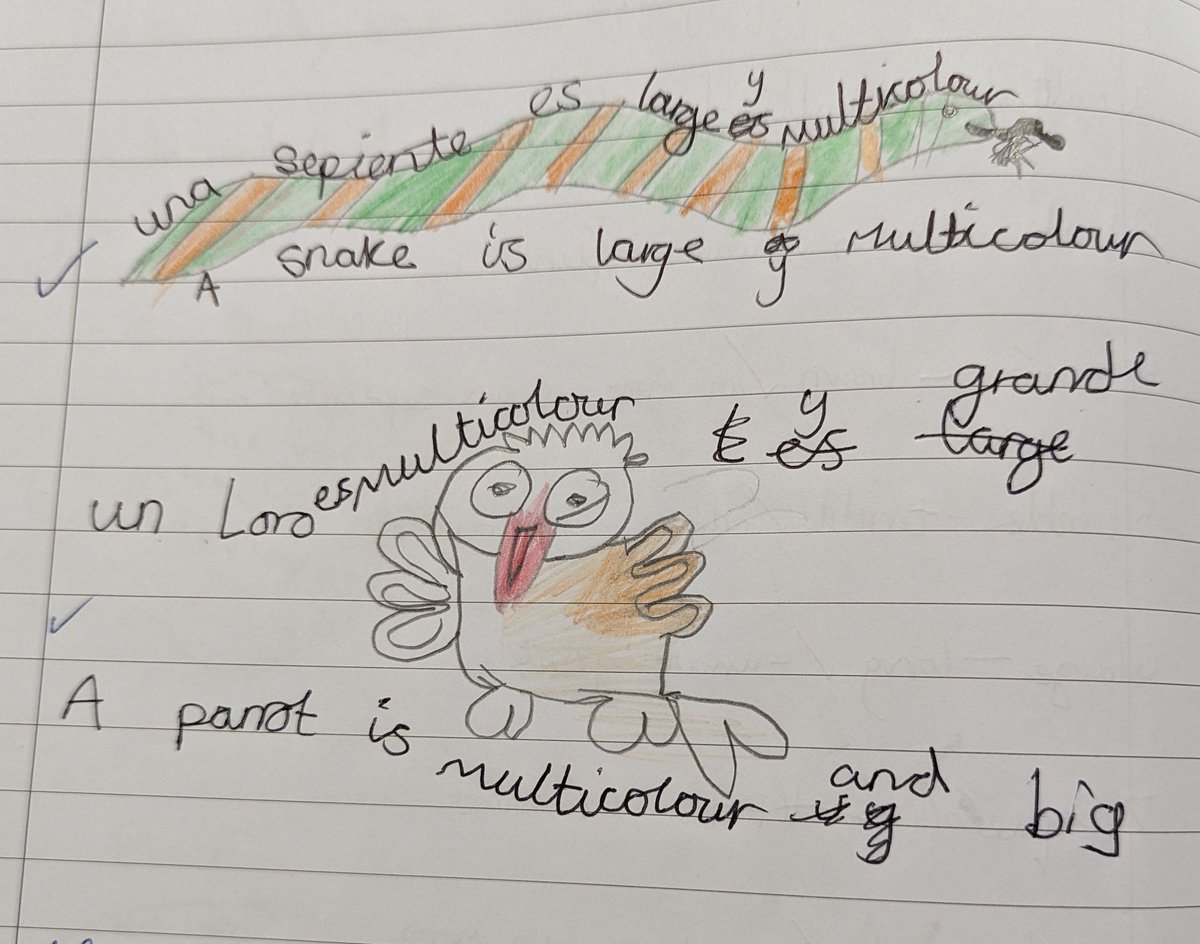 una sepiente es large y es multicolour
A snake is large y multicolour
un Loro es multicolour y es large grande
A parrot is multicolour and y big